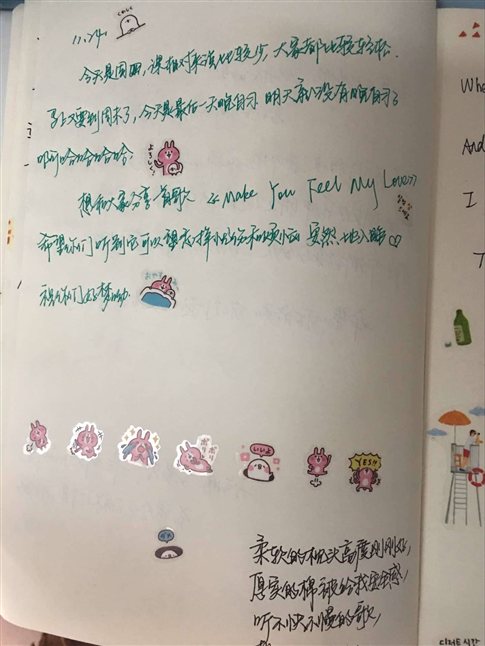 11.24.
今天是周四,课相对来说也较少,大家都比较轻松.
马上又要到周末了,今天是最后一天晚自习 明天就没有晚自习了
哈哈哈哈哈.
よろしく!
想和大家分享一首歌 《Make You Feel My Love》
希望你们听到它可以 安然地入睡♡
祝你们好梦
ポリ
ポリ
いいよ
YES!!
柔软的枕头高度刚刚好,
厚实的棉被给我安全感,
听不快不慢的歌,
Whe
And
I
T